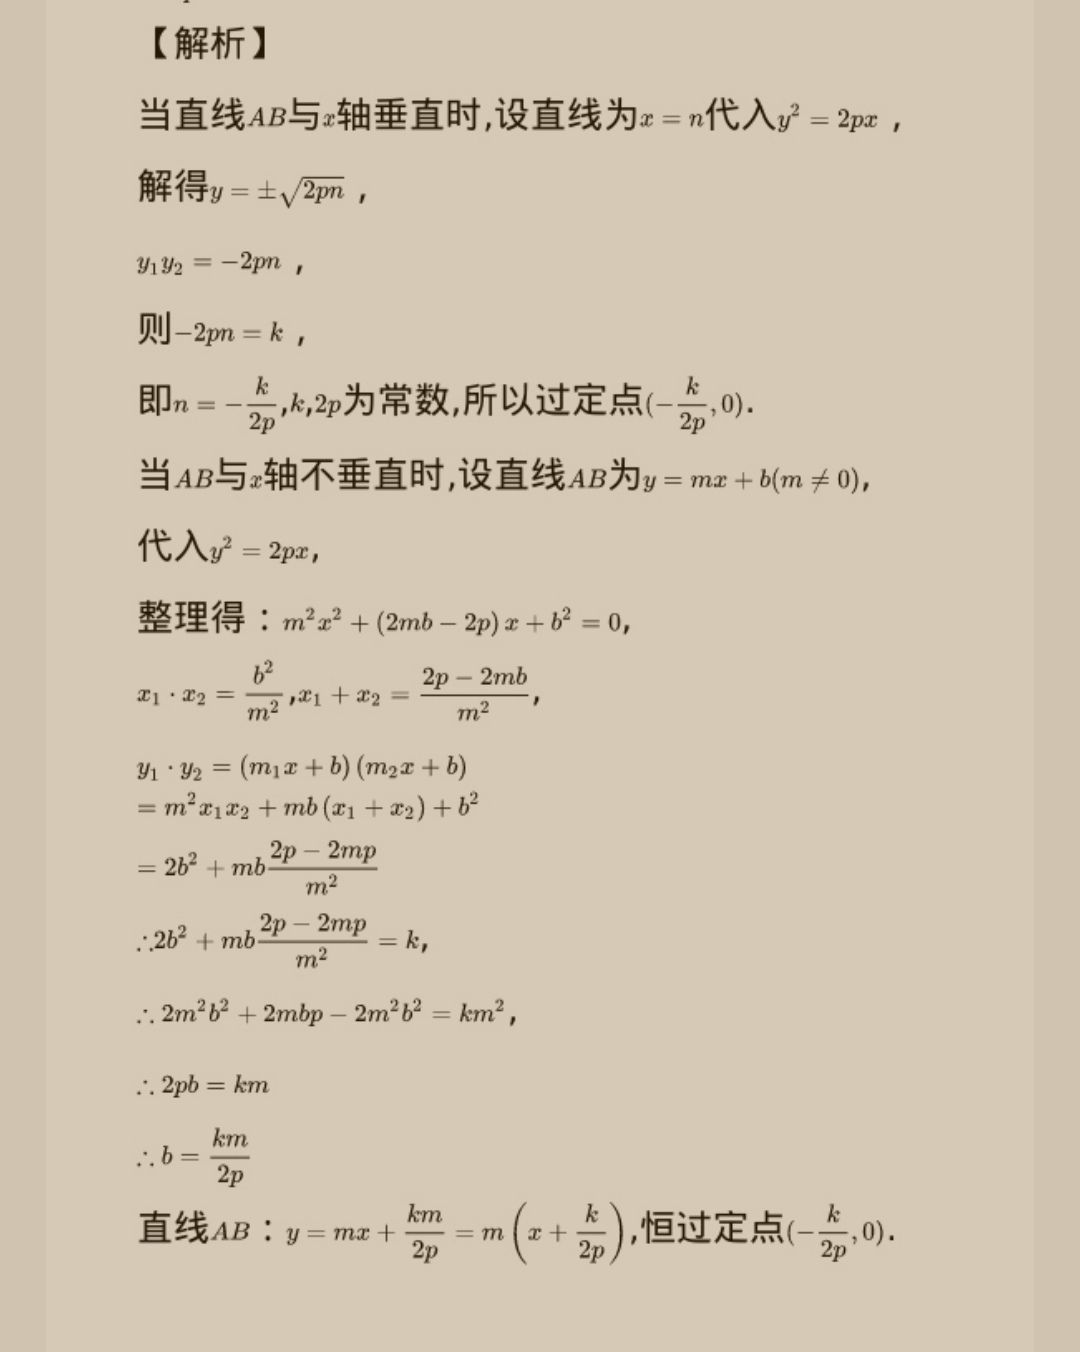 【解析】
当直线AB与x轴垂直时,设直线为x = n代入y² = 2px ,
解得y = ±√(2pn) ,
y₁y₂ = −2pn ,
则−2pn = k ,
即n = −k/(2p),k,2p为常数,所以过定点(−k/(2p), 0).
当AB与x轴不垂直时,设直线AB为y = mx + b(m ≠ 0),
代入y² = 2px,
整理得：m²x² + (2mb − 2p) x + b² = 0,
x₁ · x₂ = b²/m²,x₁ + x₂ = (2p − 2mb)/m²,
y₁ · y₂ = (m₁x + b) (m₂x + b)
= m²x₁x₂ + mb (x₁ + x₂) + b²
= 2b² + mb (2p − 2mp)/m²
∴2b² + mb (2p − 2mp)/m² = k,
∴ 2m²b² + 2mbp − 2m²b² = km²,
∴ 2pb = km
∴ b = km/(2p)
直线AB：y = mx + km/(2p) = m (x + k/(2p)),恒过定点(−k/(2p), 0).